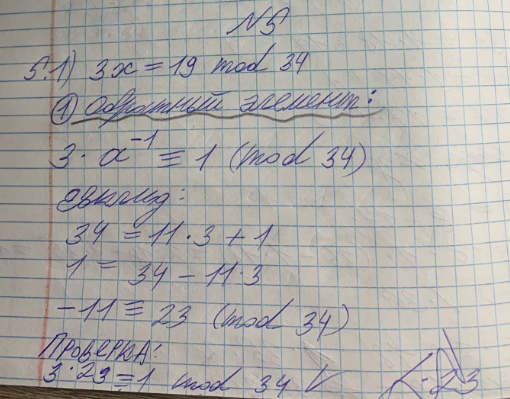 N5
5.1) 3x = 19 mod 34
① Обратный элемент:
3 · a⁻¹ ≡ 1 (mod 34)
Евклид:
34 = 11·3 + 1
1 = 34 − 11·3
−11 ≡ 23 (mod 34)
Проверка:
3·23 ≡ 1 mod 34 V